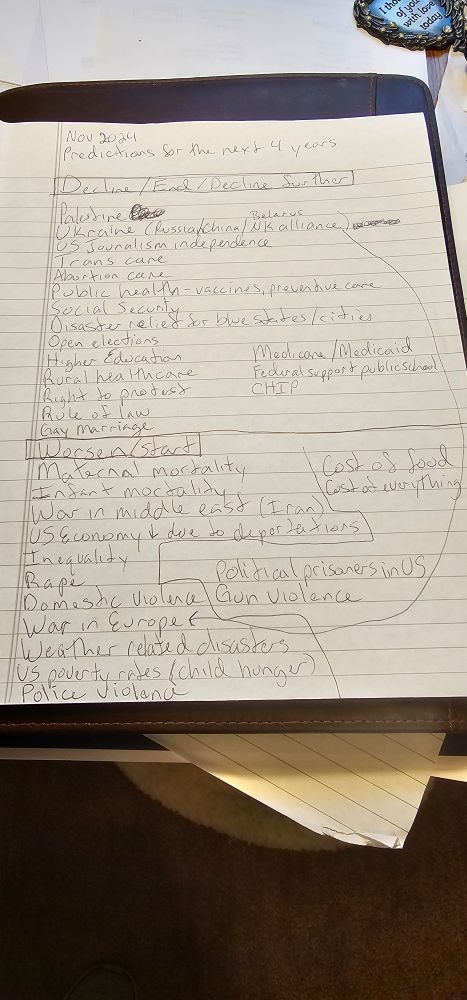 I tho
of you
with love
today
Nov 2024
Predictions for the next 4 years
Decline/End/Decline further
Palestine
Belarus
Ukraine (Russia/China/NK alliance)
US Journalism independence
Trans care
Abortion care
Public health - vaccines, preventive care
Social Security
Disaster relief for blue states/cities
Open elections
Higher Education
Rural healthcare
Right to protest
Rule of law
Gay marriage
Medicare/Medicaid
Federal support public school
CHIP
Worsen/Start
Maternal mortality
Infant mortality
War in middle east (Iran)
US Economy ↓ due to deportations
Inequality
Rape
Domestic Violence
War in Europe
Weather related disasters
US poverty rates (child hunger)
Police Violence
Cost of food
Cost of everything
Political prisoners in US
Gun Violence